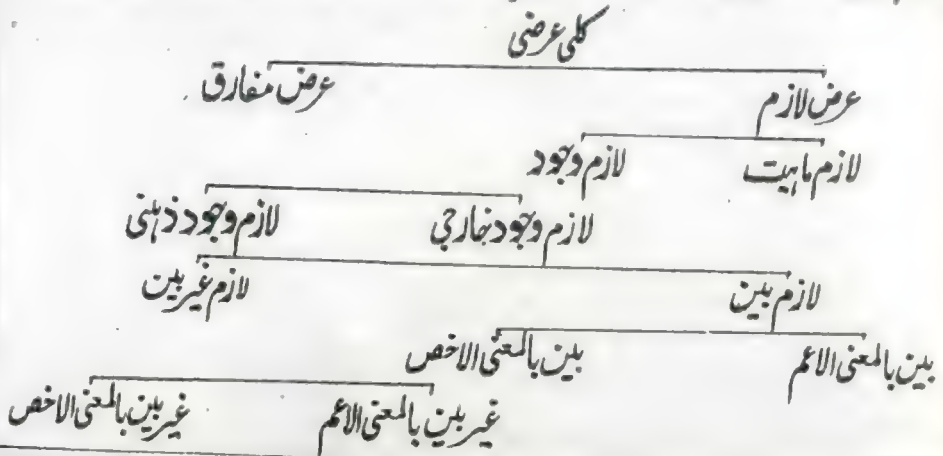 کلی عرضی
عرض لازم عرض مفارق
لازم ماہیت لازم وجود
لازم وجود خارجی لازم وجود ذہنی
لازم بین لازم غیر بین
بین بالمعنی الاعم بین بالمعنی الاخص
غیر بین بالمعنی الاعم غیر بین بالمعنی الاخص